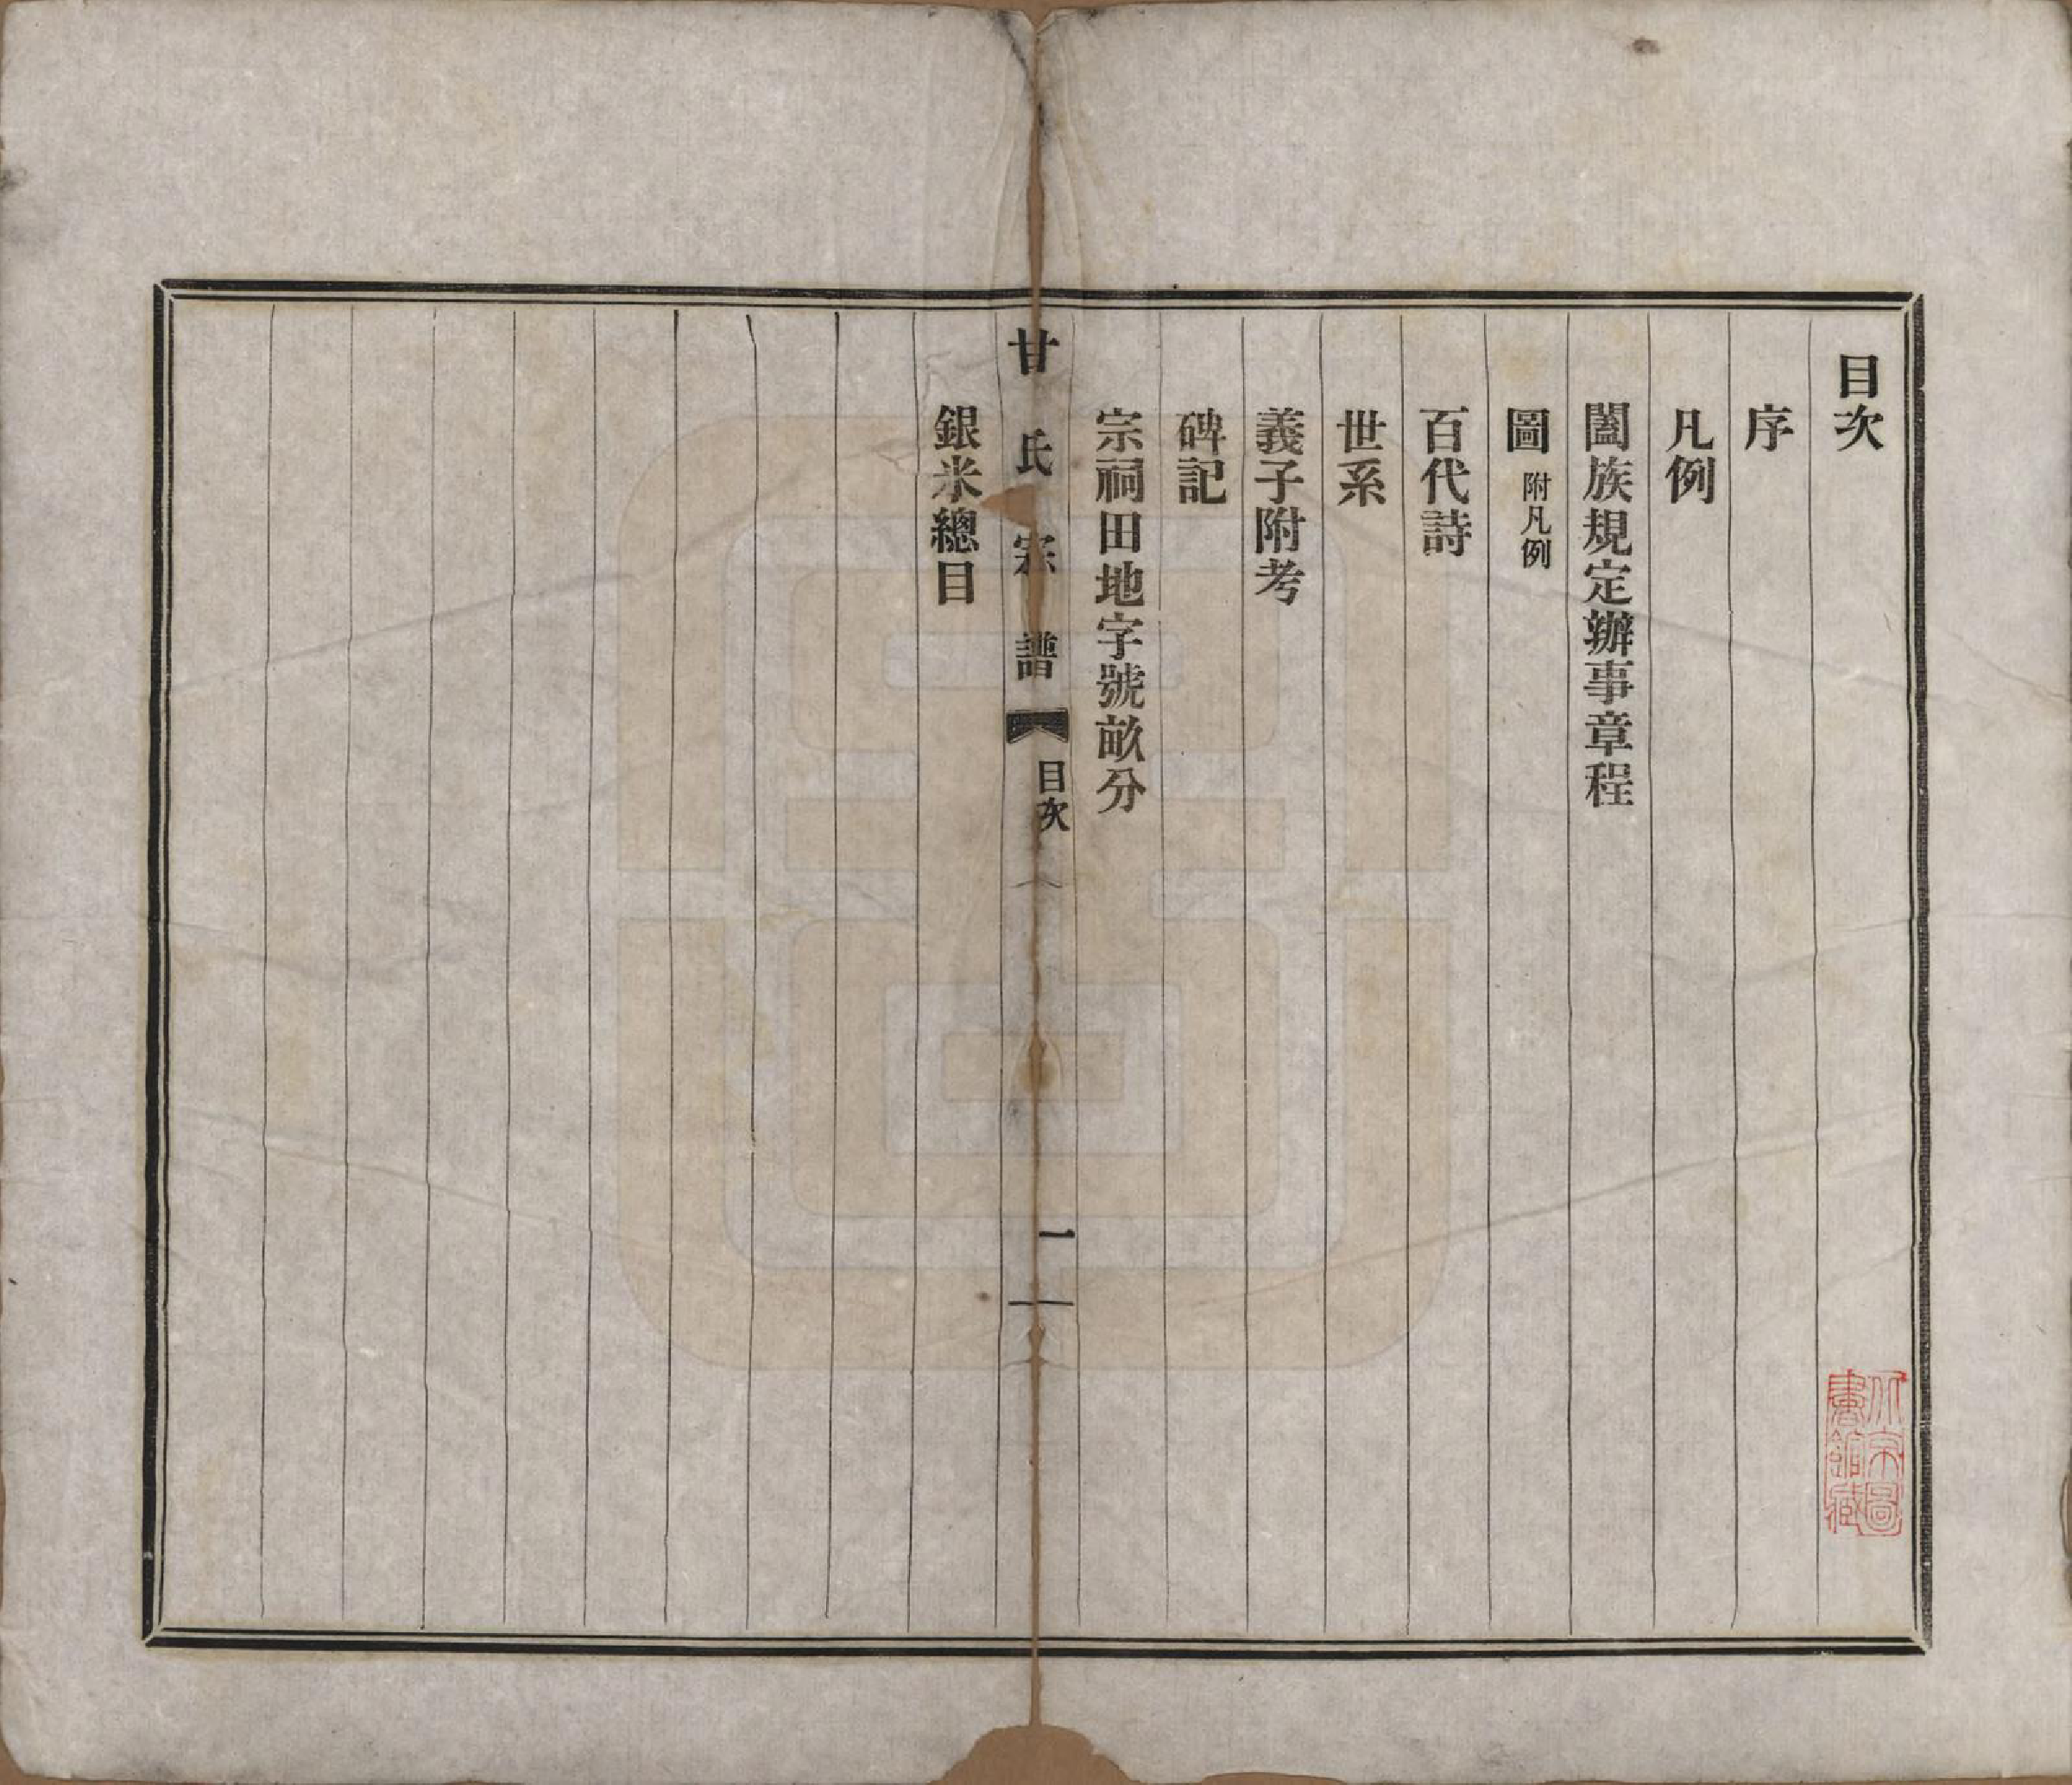 目次
序
凡例
闔族規定辦事章程
圖 附凡例
百代詩
世系
義子附考
碑記
宗祠田地字號畝分
甘氏宗譜 目次 一
銀米總目
圖
書館藏